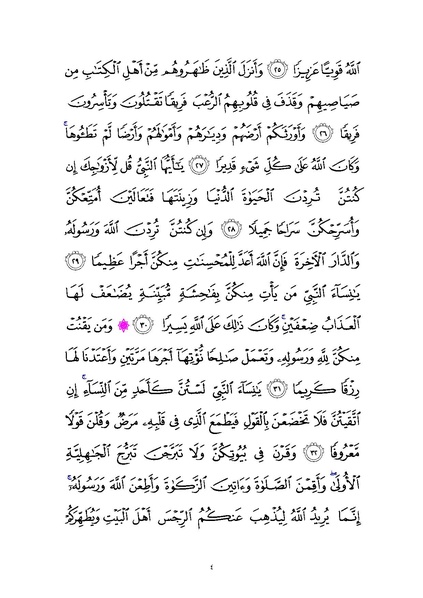 ٱللَّهُ قَوِيًّا عَزِيزًا ۝٢٥ وَأَنزَلَ ٱلَّذِينَ ظَٰهَرُوهُم مِّنْ أَهْلِ ٱلْكِتَٰبِ مِن
صَيَاصِيهِمْ وَقَذَفَ فِى قُلُوبِهِمُ ٱلرُّعْبَ فَرِيقًا تَقْتُلُونَ وَتَأْسِرُونَ
فَرِيقًا ۝٢٦ وَأَوْرَثَكُمْ أَرْضَهُمْ وَدِيَٰرَهُمْ وَأَمْوَٰلَهُمْ وَأَرْضًا لَّمْ تَطَـُٔوهَا ۚ
وَكَانَ ٱللَّهُ عَلَىٰ كُلِّ شَىْءٍ قَدِيرًا ۝٢٧ يَٰٓأَيُّهَا ٱلنَّبِىُّ قُل لِّأَزْوَٰجِكَ إِن
كُنتُنَّ تُرِدْنَ ٱلْحَيَوٰةَ ٱلدُّنْيَا وَزِينَتَهَا فَتَعَالَيْنَ أُمَتِّعْكُنَّ
وَأُسَرِّحْكُنَّ سَرَاحًا جَمِيلًا ۝٢٨ وَإِن كُنتُنَّ تُرِدْنَ ٱللَّهَ وَرَسُولَهُۥ
وَٱلدَّارَ ٱلْءَاخِرَةَ فَإِنَّ ٱللَّهَ أَعَدَّ لِلْمُحْسِنَٰتِ مِنكُنَّ أَجْرًا عَظِيمًا ۝٢٩
يَٰنِسَآءَ ٱلنَّبِىِّ مَن يَأْتِ مِنكُنَّ بِفَٰحِشَةٍ مُّبَيِّنَةٍ يُضَٰعَفْ لَهَا
ٱلْعَذَابُ ضِعْفَيْنِ ۚ وَكَانَ ذَٰلِكَ عَلَى ٱللَّهِ يَسِيرًا ۝٣٠ ۞ وَمَن يَقْنُتْ
مِنكُنَّ لِلَّهِ وَرَسُولِهِۦ وَتَعْمَلْ صَٰلِحًا نُّؤْتِهَآ أَجْرَهَا مَرَّتَيْنِ وَأَعْتَدْنَا لَهَا
رِزْقًا كَرِيمًا ۝٣١ يَٰنِسَآءَ ٱلنَّبِىِّ لَسْتُنَّ كَأَحَدٍ مِّنَ ٱلنِّسَآءِ ۚ إِنِ
ٱتَّقَيْتُنَّ فَلَا تَخْضَعْنَ بِٱلْقَوْلِ فَيَطْمَعَ ٱلَّذِى فِى قَلْبِهِۦ مَرَضٌ وَقُلْنَ قَوْلًا
مَّعْرُوفًا ۝٣٢ وَقَرْنَ فِى بُيُوتِكُنَّ وَلَا تَبَرَّجْنَ تَبَرُّجَ ٱلْجَٰهِلِيَّةِ
ٱلْأُولَىٰ ۖ وَأَقِمْنَ ٱلصَّلَوٰةَ وَءَاتِينَ ٱلزَّكَوٰةَ وَأَطِعْنَ ٱللَّهَ وَرَسُولَهُۥٓ ۚ
إِنَّمَا يُرِيدُ ٱللَّهُ لِيُذْهِبَ عَنكُمُ ٱلرِّجْسَ أَهْلَ ٱلْبَيْتِ وَيُطَهِّرَكُمْ
٤